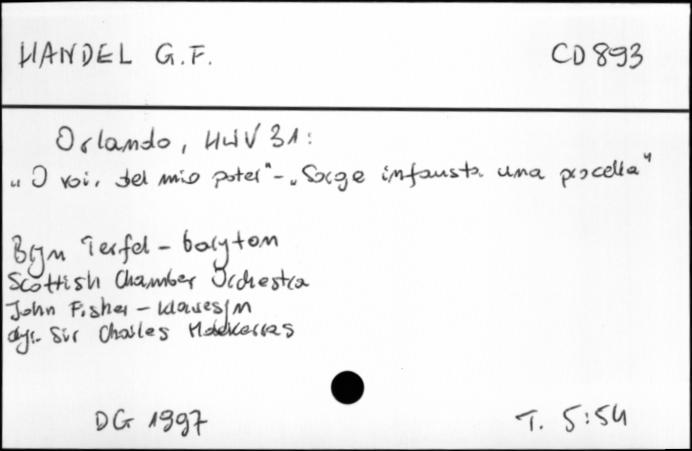 HANDEL G.F. CD 893
Orlando, HWV 31:
„O voi, del mio poter" - „Sorge infausta una procella"
Bryn Terfel - baryton
Scottish Chamber Orchestra
John Fisher - klawesyn
dyr. Sir Charles Mackerras
DG 1997 T. 5:54